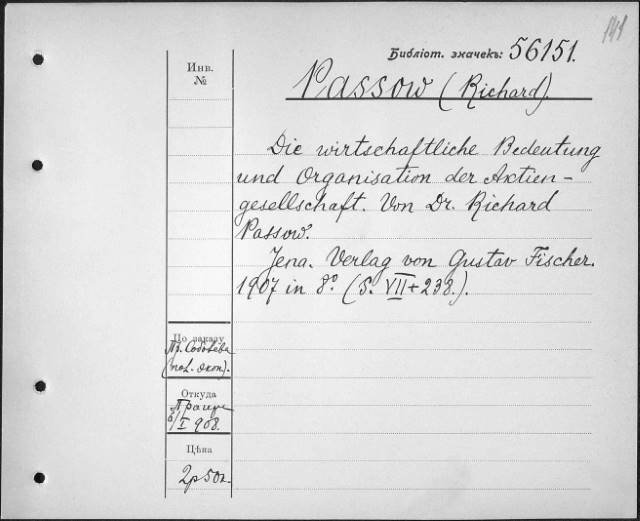 141
Библіот. значекъ: 56151.
Инв.
№
Passow (Richard).
Die wirtschaftliche Bedeutung
und Organisation der Aktien-
gesellschaft. Von Dr. Richard
Passow.
Jena. Verlag von Gustav Fischer.
1907 in 8º. (S. VII + 238.).
По заказу
(пол. экон).
Откуда
6/I 908.
Цѣна
2р 50к.